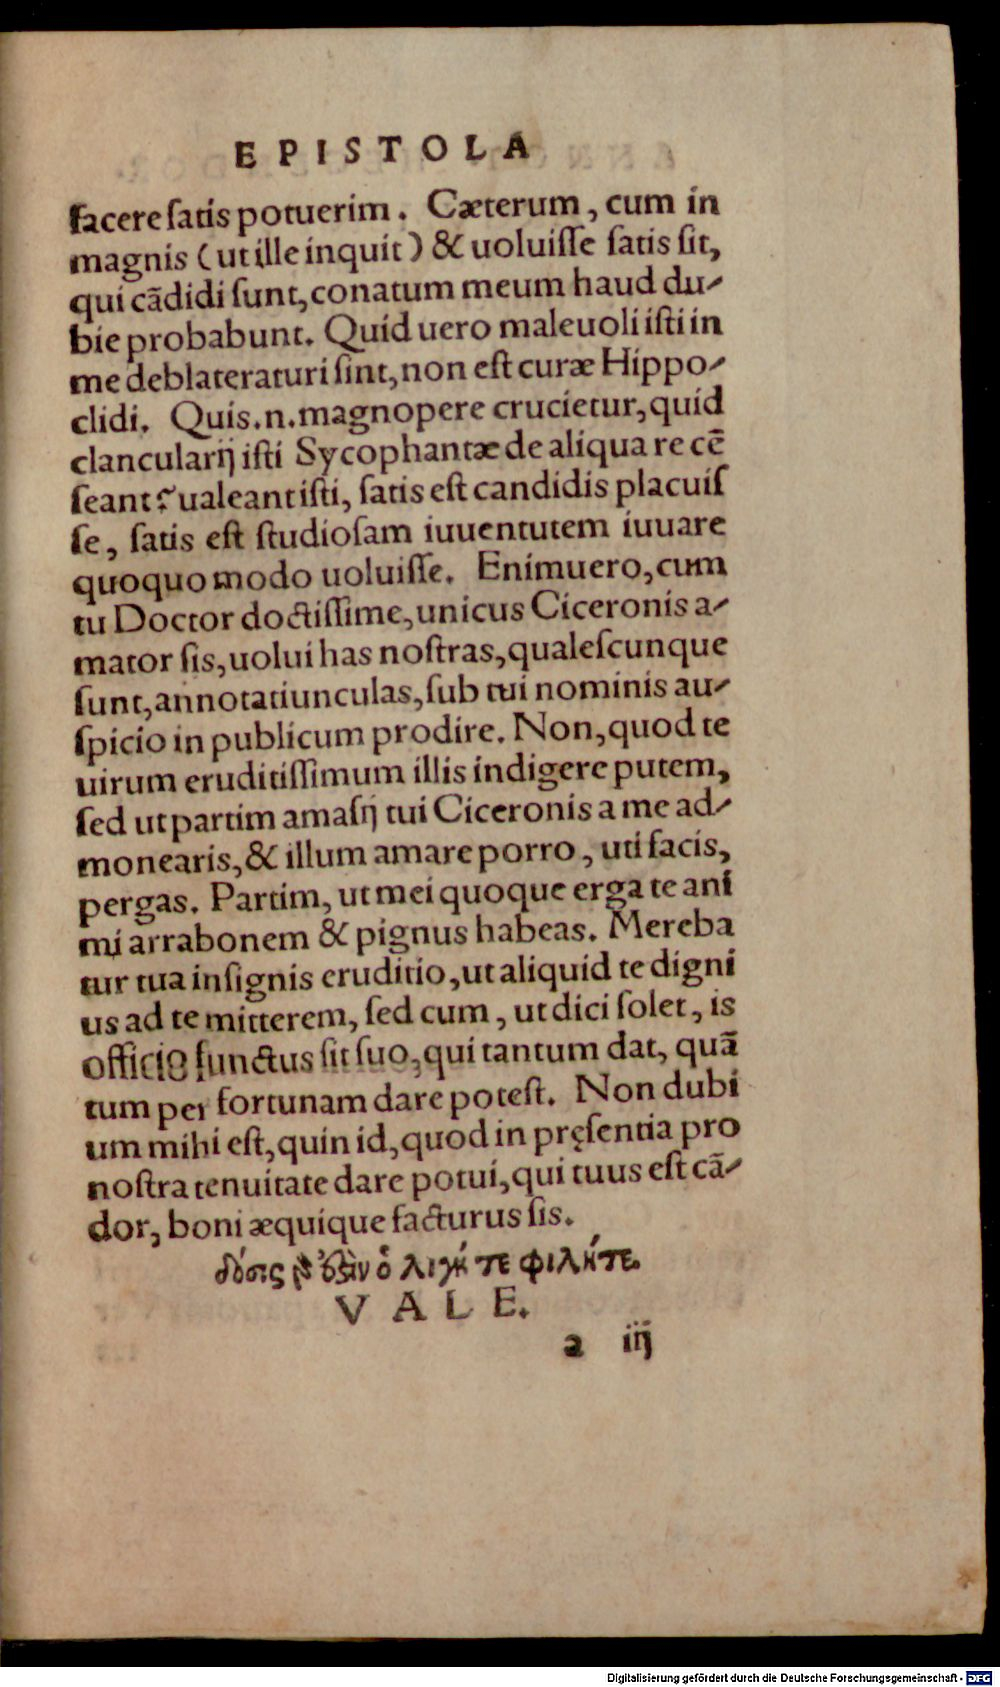 EPISTOLA
facere ſatis potuerim. Cæterum, cum in
magnis (ut ille inquit) & uoluiſſe ſatis ſit,
qui cãdidi ſunt, conatum meum haud du-
bie probabunt. Quid uero maleuoli iſti in
me deblateraturi ſint, non eſt curæ Hippo-
clidi. Quis.n.magnopere crucietur, quid
clancularij iſti Sycophantæ de aliqua re cẽ
ſeant? ualeant iſti, ſatis eſt candidis placuiſ
ſe, ſatis eſt ſtudioſam iuuentutem iuuare
quoquo modo uoluiſſe. Enimuero, cum
tu Doctor doctiſſime, unicus Ciceronis a-
mator ſis, uolui has noſtras, qualeſcunque
ſunt, annotatiunculas, ſub tui nominis au-
ſpicio in publicum prodire. Non, quod te
uirum eruditiſſimum illis indigere putem,
ſed ut partim amaſij tui Ciceronis a me ad-
monearis, & illum amare porro, uti facis,
pergas. Partim, ut mei quoque erga te ani
mi arrabonem & pignus habeas. Mereba
tur tua inſignis eruditio, ut aliquid te digni
us ad te mitterem, ſed cum, ut dici ſolet, is
officio functus ſit ſuo, qui tantum dat, quã
tum per fortunam dare poteſt. Non dubi
um mihi eſt, quin id, quod in pręſentia pro
noſtra tenuitate dare potui, qui tuus eſt cã-
dor, boni æquique facturus ſis.
δόσις ὀλίγη τε φίλητε.
VALE.
a iij
Digitalisierung gefördert durch die Deutsche Forschungsgemeinschaft - DFG